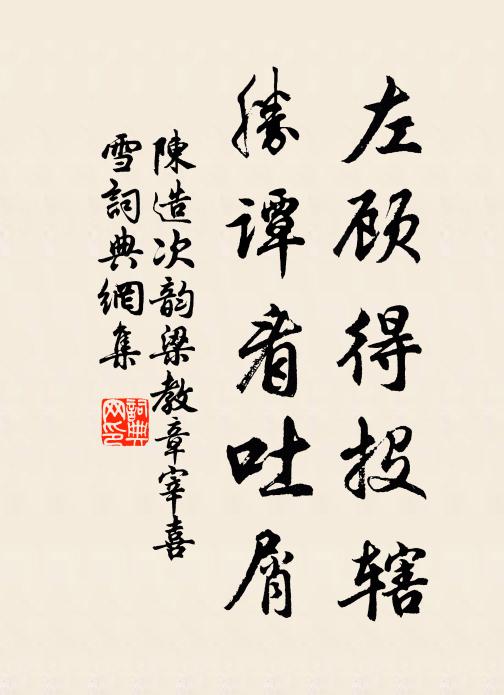 左顾得投辖
胜谭看吐屑
陳造次韵梁教章宰喜
雪詞典網集
詞典网印